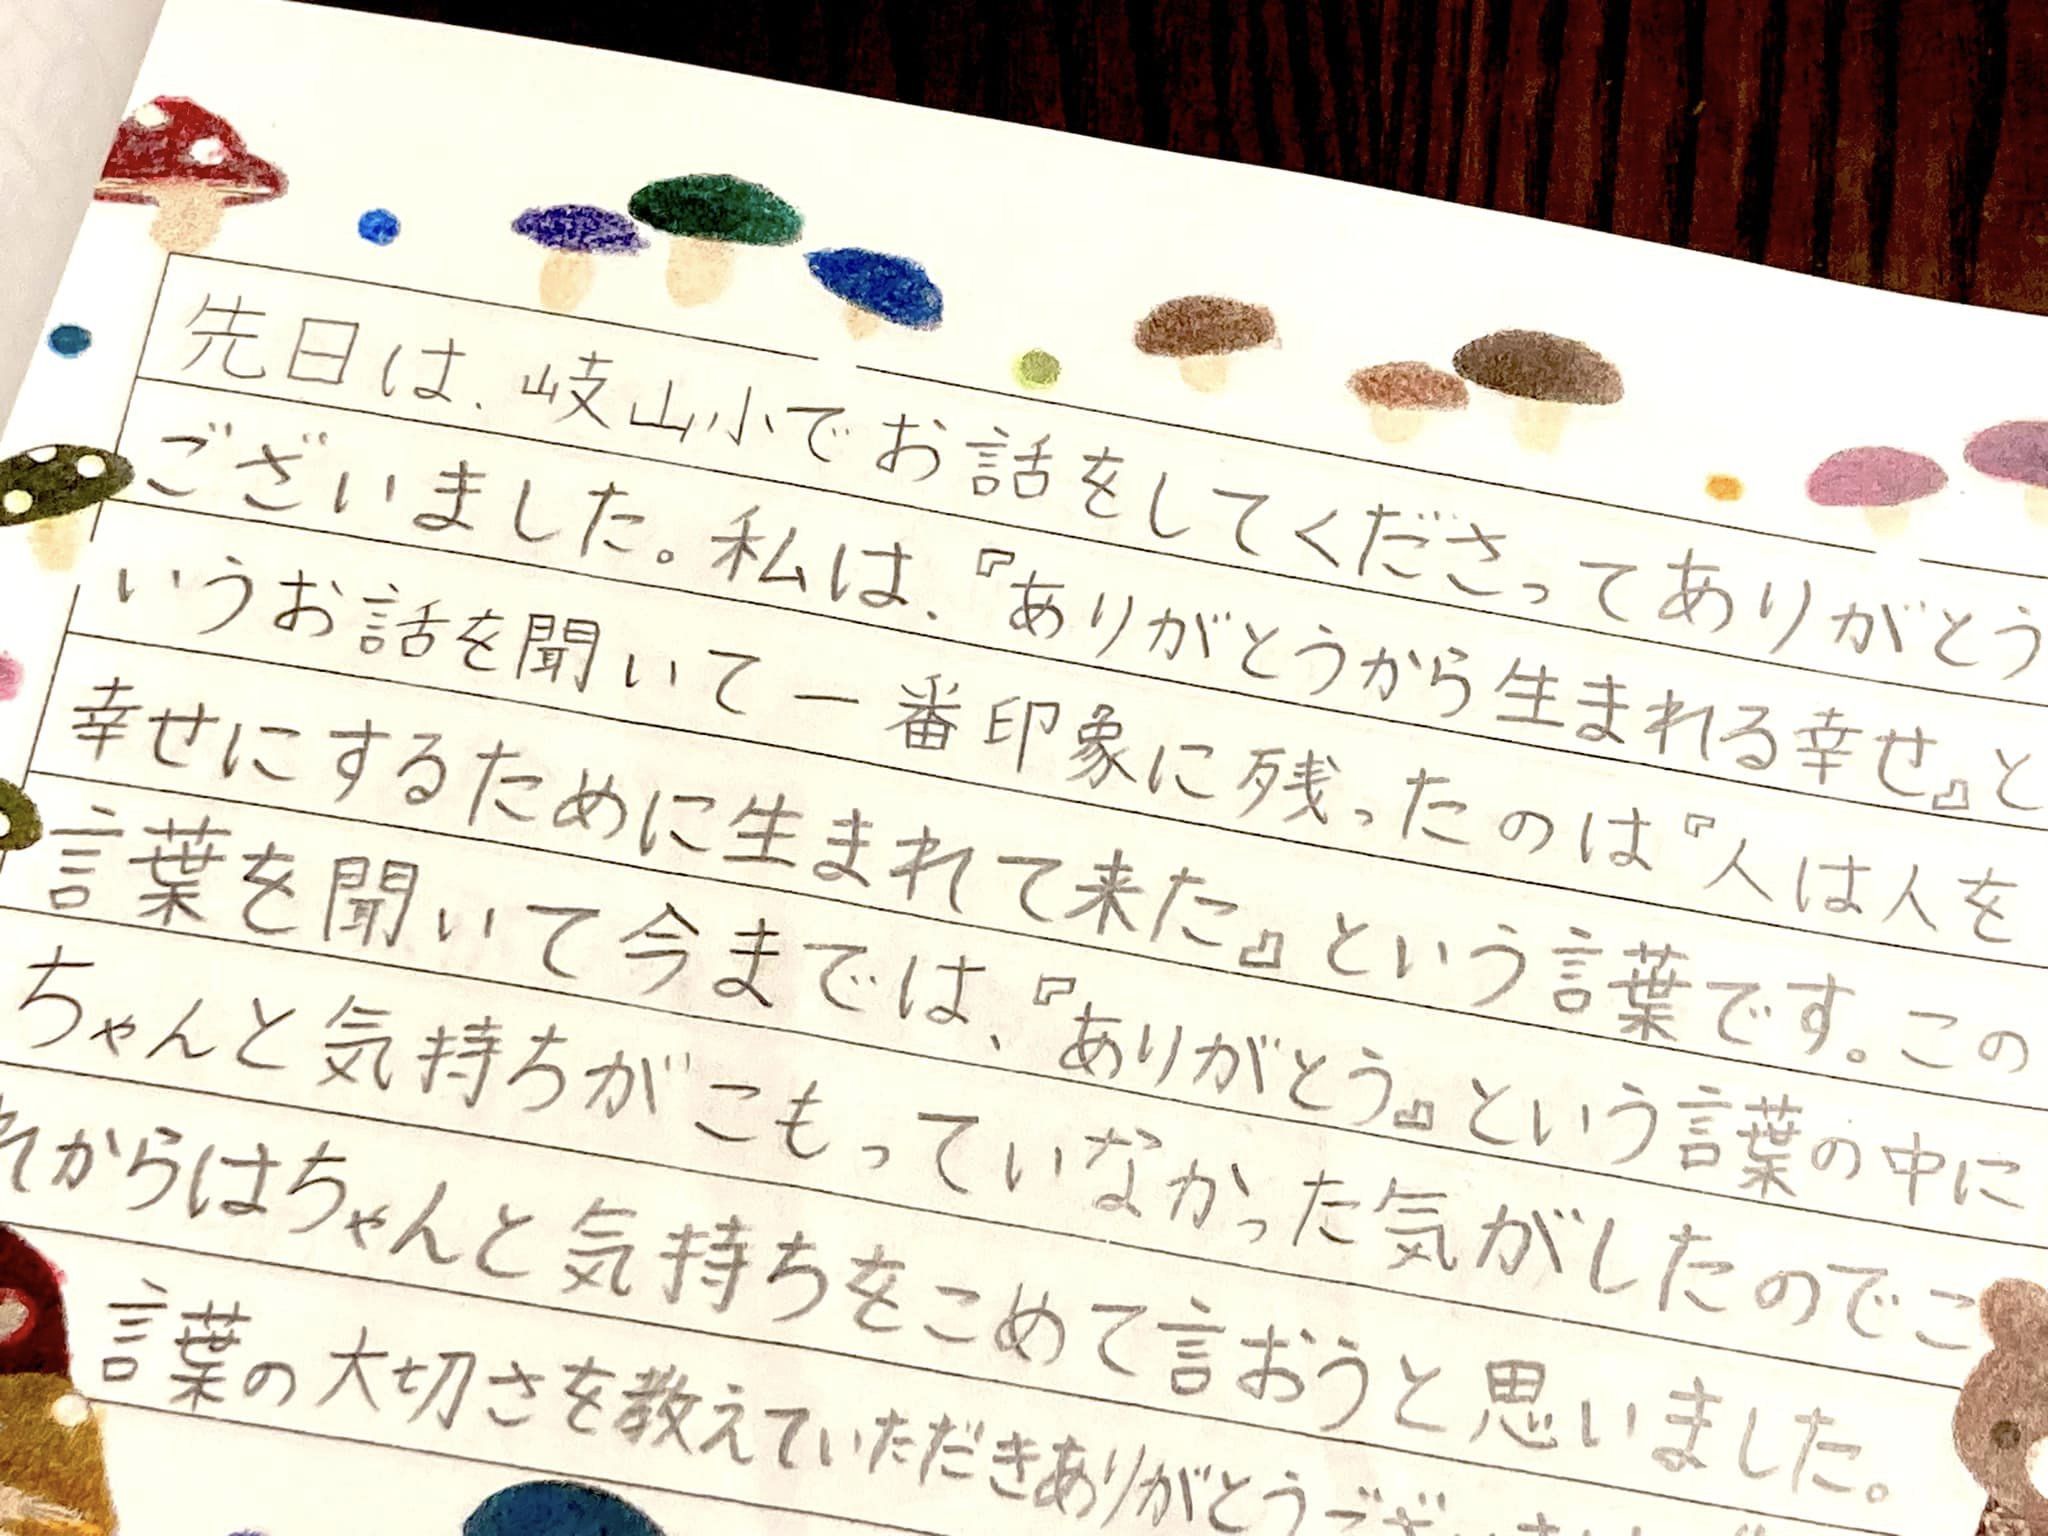 先日は、岐山小でお話をしてくださってありがとう
ございました。私は、『ありがとうから生まれる幸せ』と
いうお話を聞いて一番印象に残ったのは『人は人を
幸せにするために生まれて来た』という言葉です。この
言葉を聞いて今までは、『ありがとう』という言葉の中に
ちゃんと気持ちがこもっていなかった気がしたのでこ
れからはちゃんと気持ちをこめて言おうと思いました。
言葉の大切さを教えていただきありがとうござい